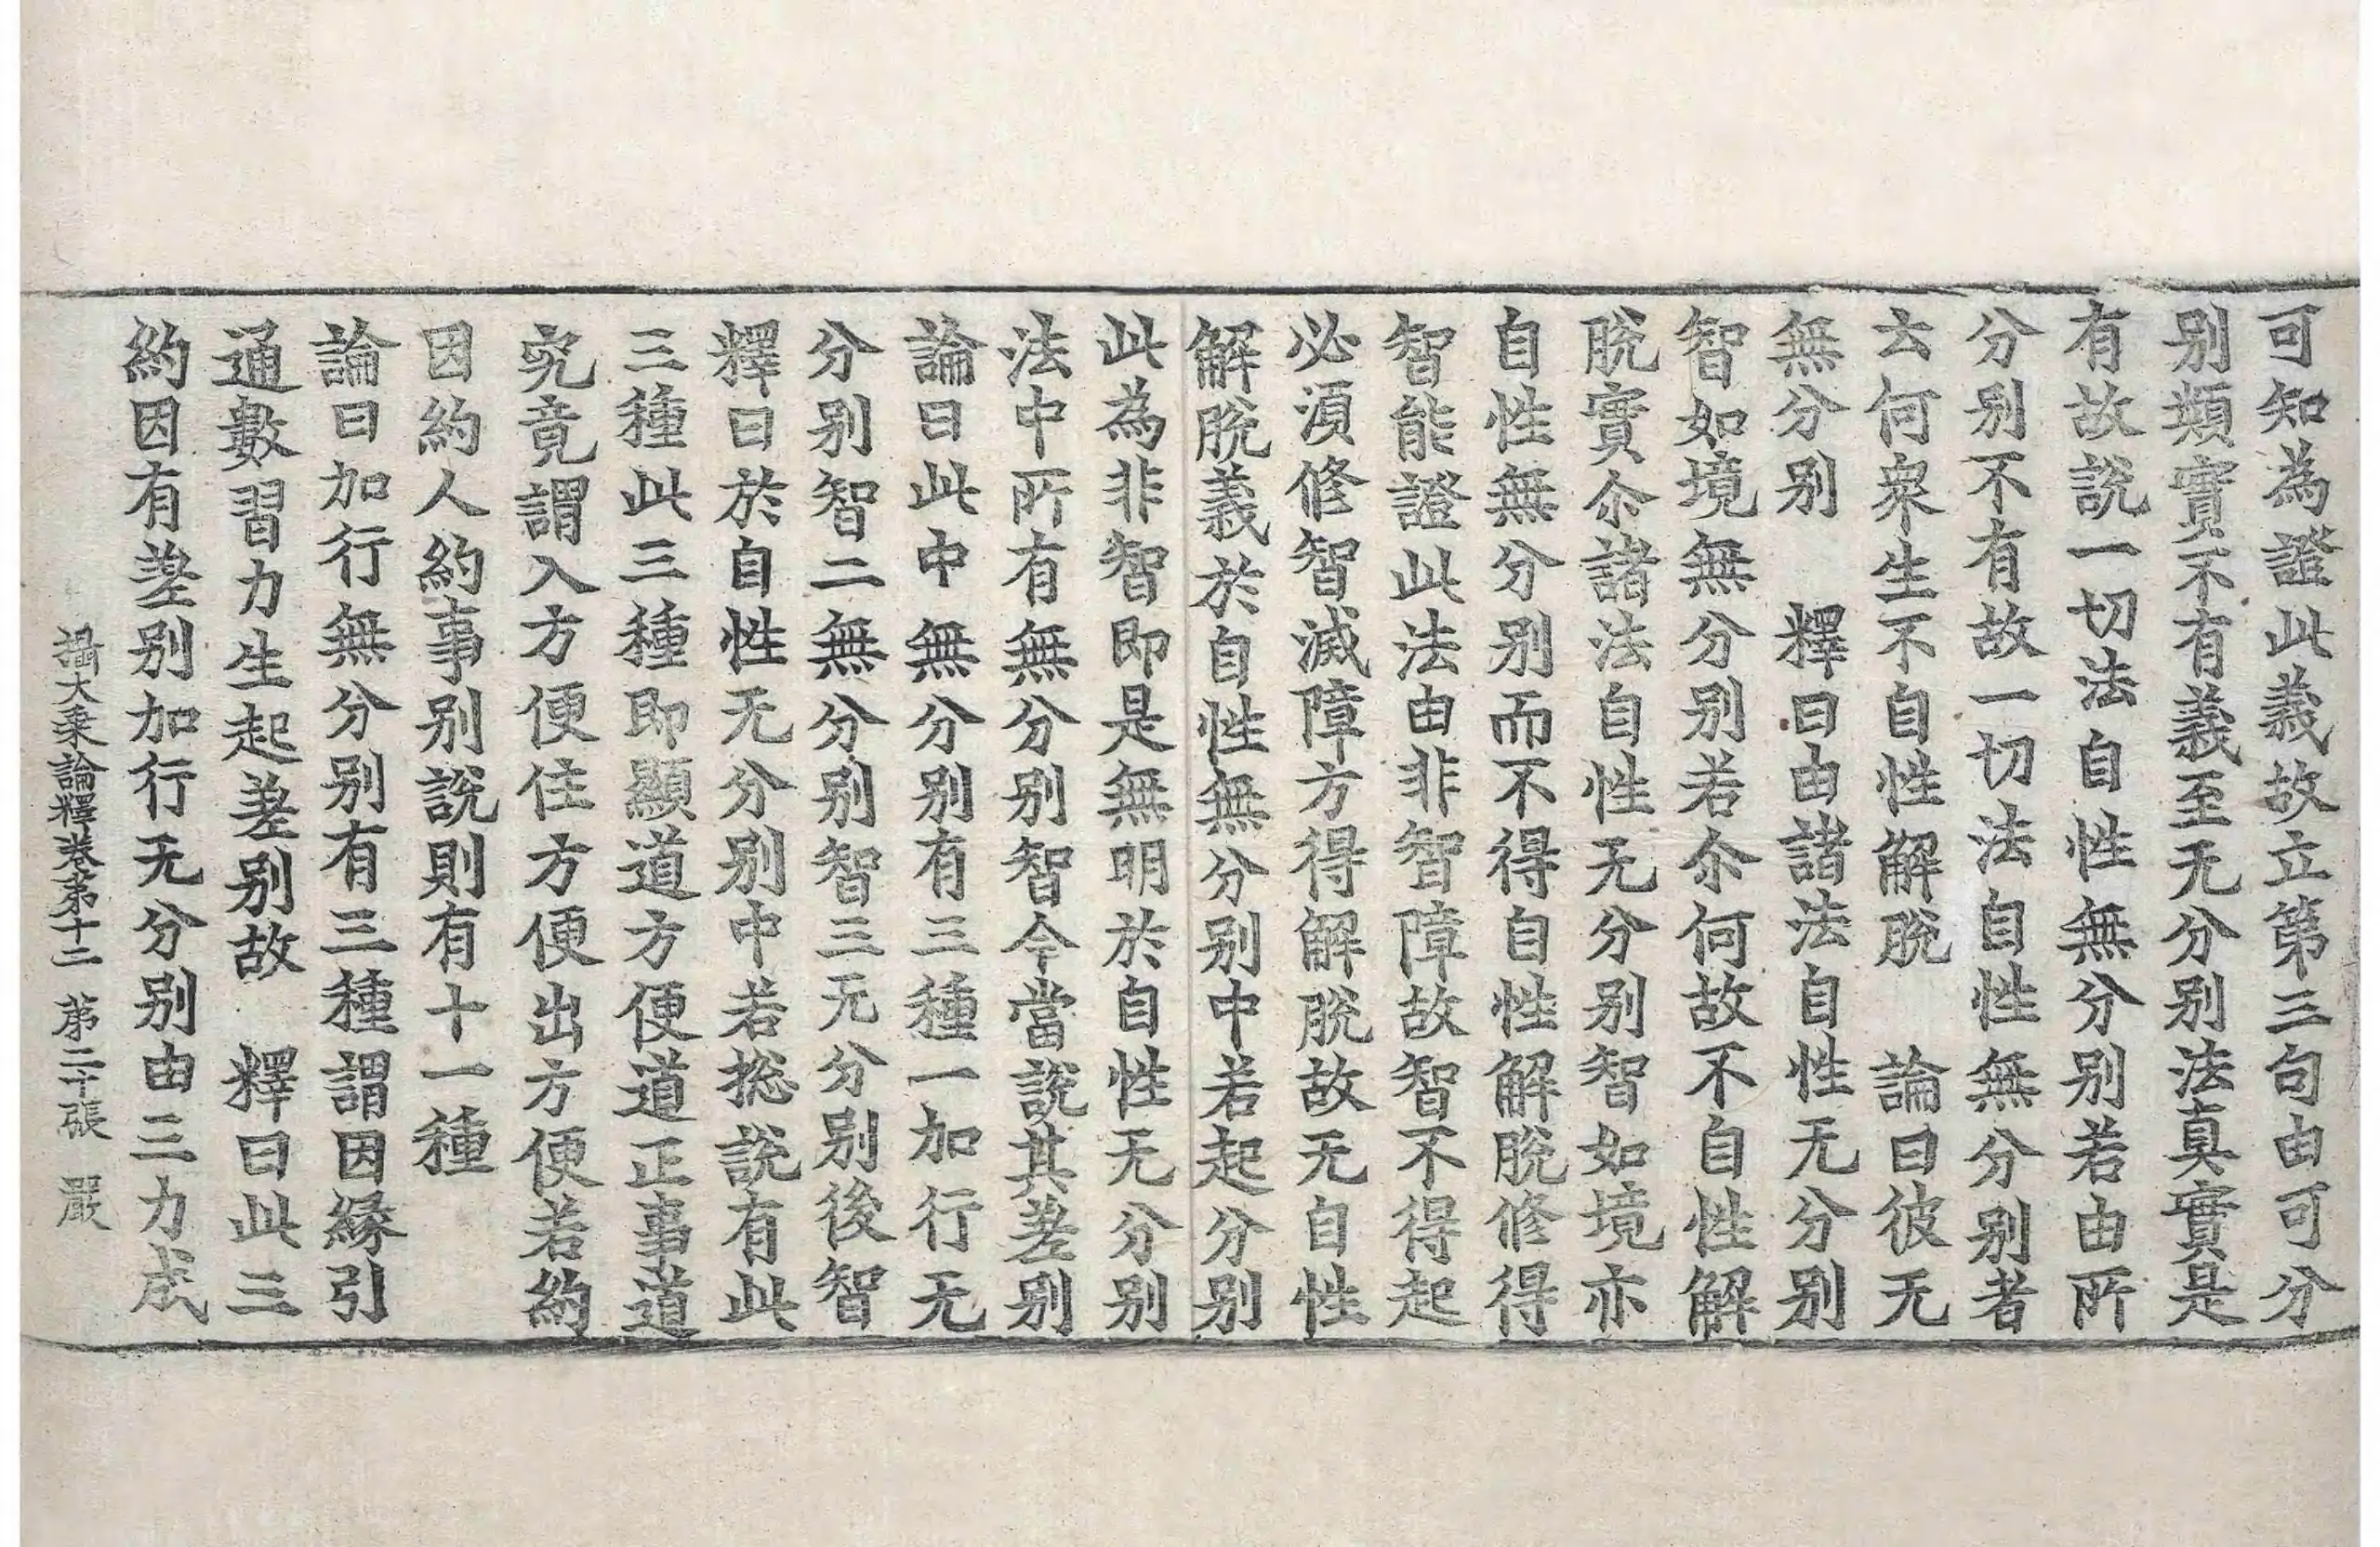 可知為證此義故立第三句由可分
别類實不有義至无分别法真實是
有故説一切法自性無分别若由所
分别不有故一切法自性無分别者
云何衆生不自性解脫　論曰彼无
無分别　釋曰由諸法自性无分别
智如境無分别若尒何故不自性解
脫實尒諸法自性无分别智如境亦
自性無分别而不得自性解脫修得
智能證此法由非智障故智不得起
必湏修智滅障方得解脫故无自性
解脫義於自性無分别中若起分别
此為非智即是無明於自性无分别
法中所有無分别智今當說其差别
論曰此中無分别有三種一加行无
分别智二無分别智三无分别後智
釋曰於自性无分别中若揔說有此
三種此三種即顯道方便道正事道
究竟謂入方便住方便出方便若約
因約人約事别說則有十一種
論曰加行無分别有三種謂因緣引
通數習力生起差别故　釋曰此三
約因有差别加行无分别由三力成
攝大乘論釋卷第十二　第二十張　嚴